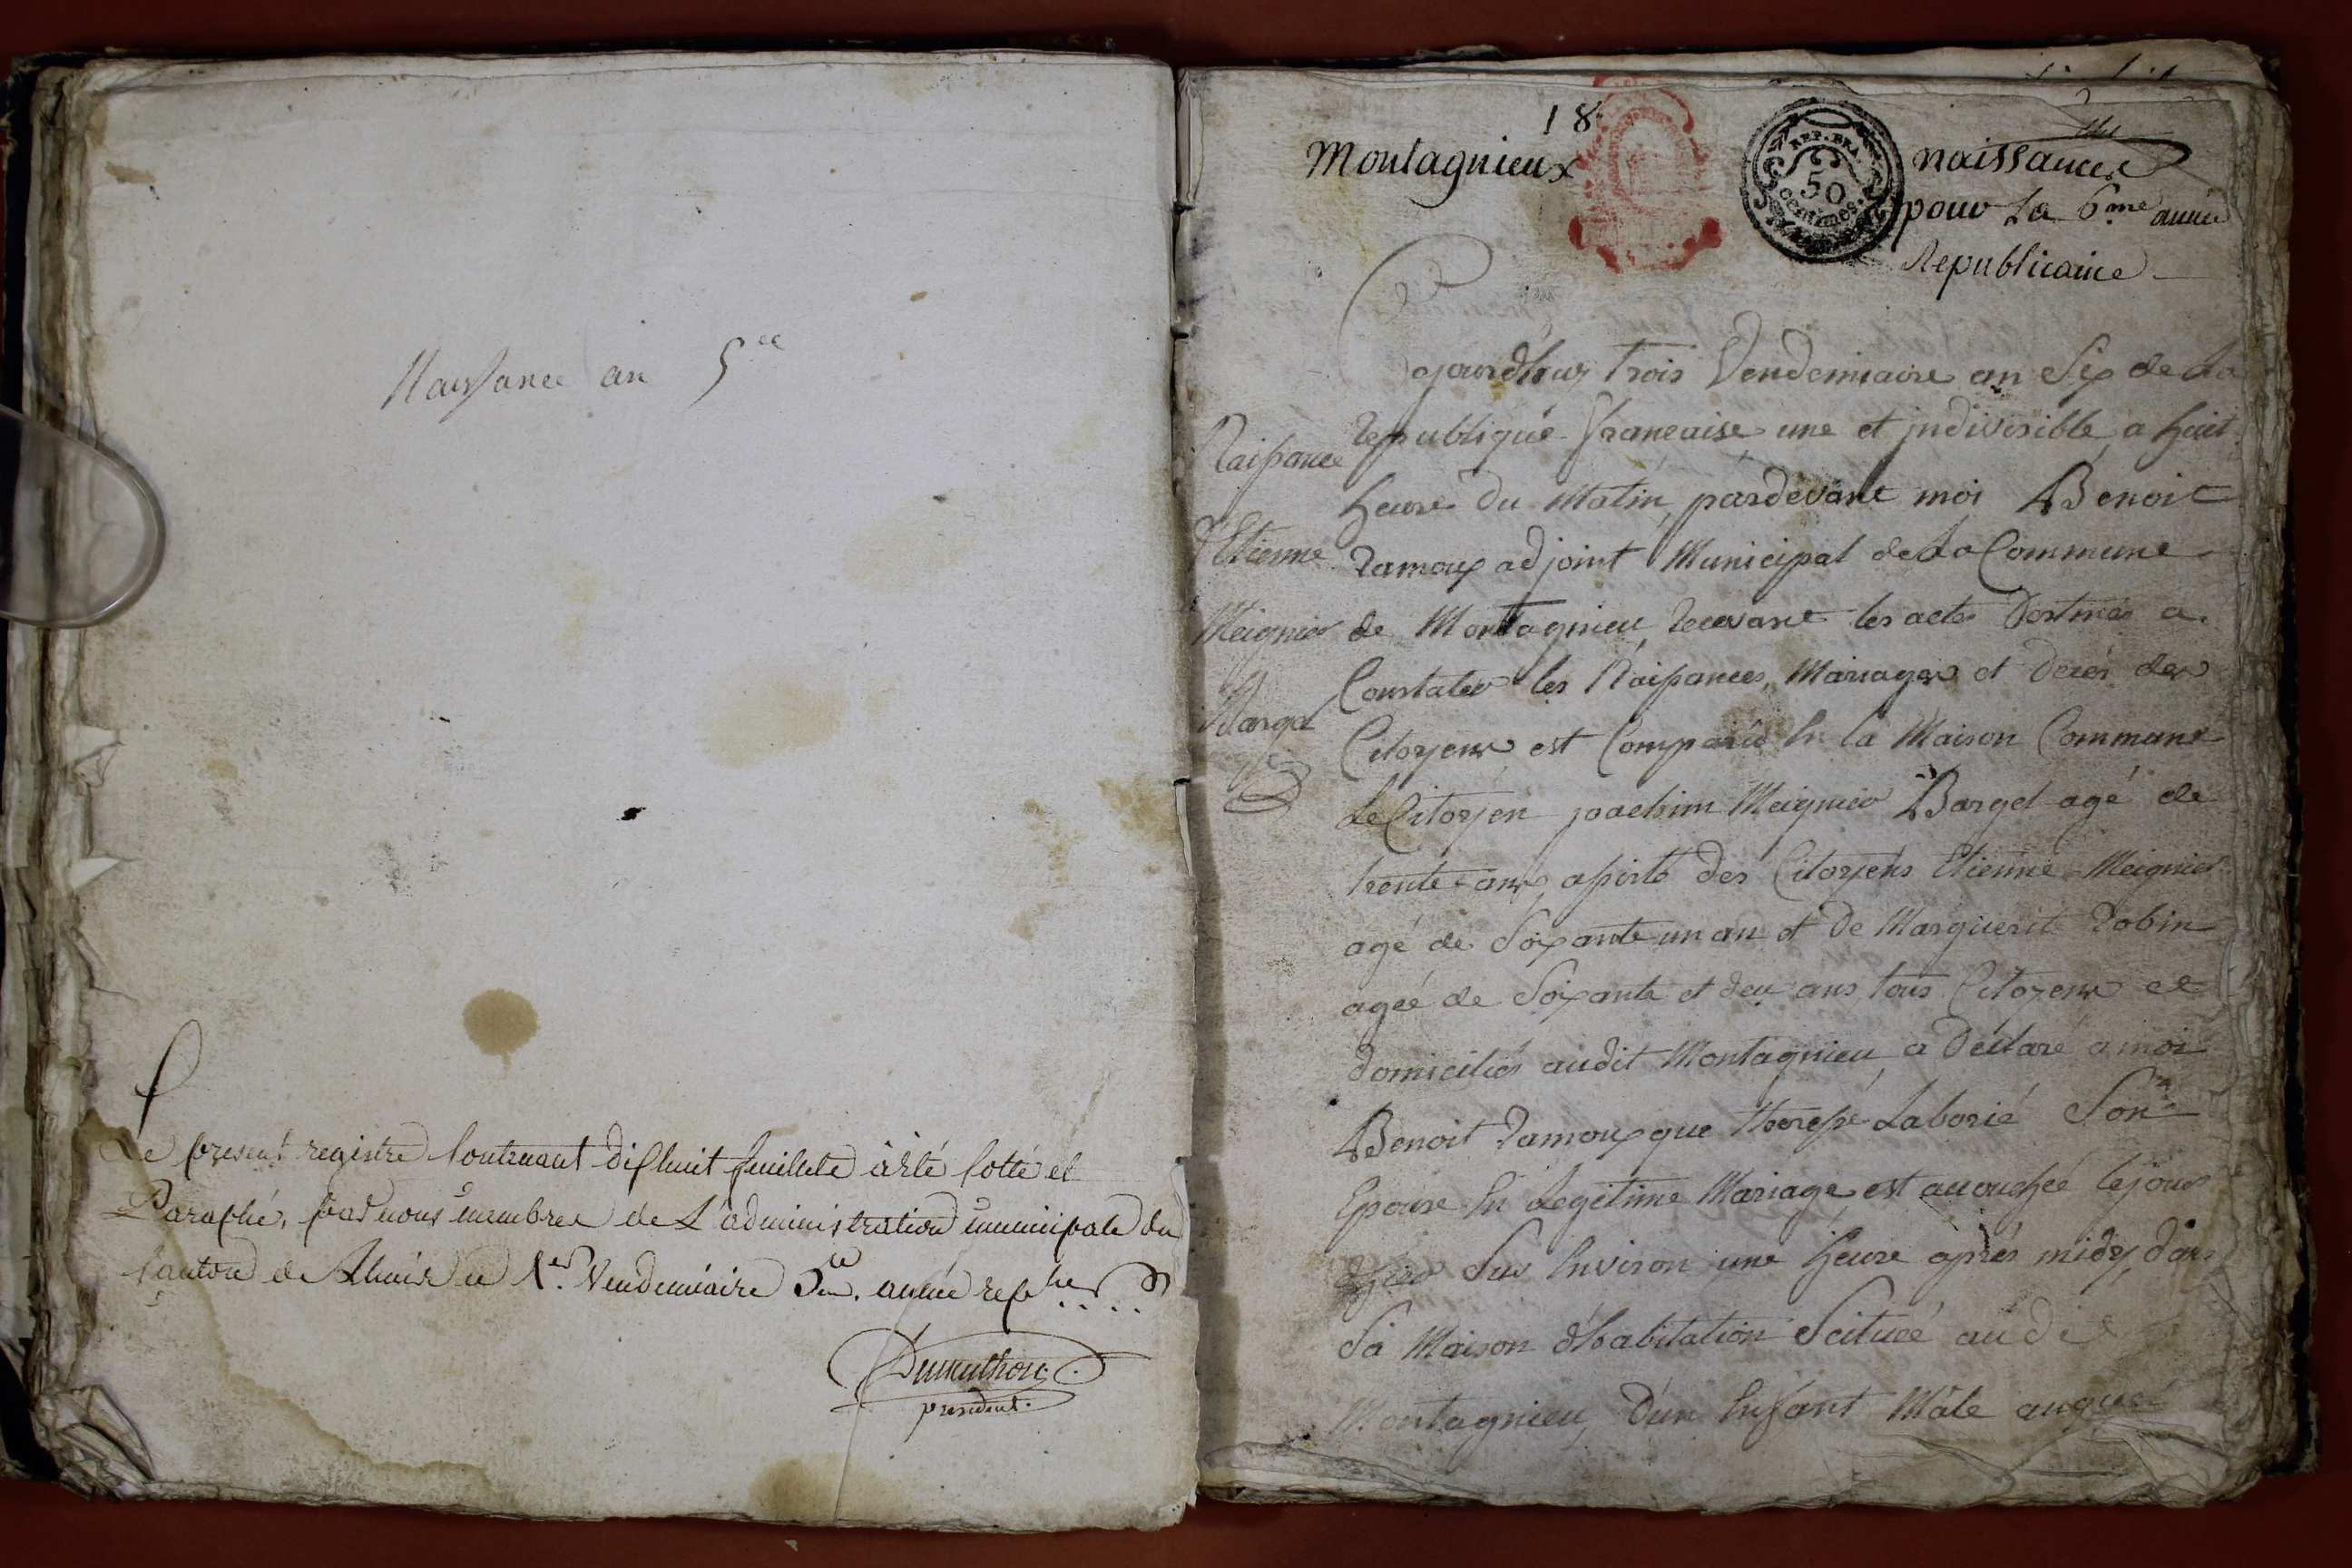 Naissance an 5ee
Le present registre Contenant dixhuit feuillets à été Cotté et
Paraphé, par nous membres de L'administration municipale du
Canton de Lhuis le 1er. Vendemiaire 5e. année repne
Dumuthon
president.
18
Montagnieux
REP. FRA.
50
centimes.
naissances
pour La 6.me année
Republicaine
Naissance
d'Etienne
Meignier
Barget
jourdhuy trois Vendemiaire an Six de La
Republique françaize une et jndivisible a huit
heure du Matin, pardevant moi Benoit
Ramoux adjoint Municipal de La Commune
de Montagnieu Recevant les actes Destinés a
Constater les Naissances, Mariages et Decès des
Citoyens est Comparû En la Maison Commune
Le Citoyen joachim Meignier Barget agé de
trente ans, assisté des Citoyens Etienne Meignier
agé de Soixante un an et De Marguerit Robin
ageé de Soixante et deux ans tous Citoyens et
domiciliés audit Montagnieu, a Déclaré a moi
Benoit Ramoux que Therese Laborié Son
Epouse En Legitime Mariage est accouchée le jour
d'hier Sur Environ une heure après midy dans
Sa Maison d'habitation Scituée audit
Montagnieu, D'un Enfant Mâle auquel